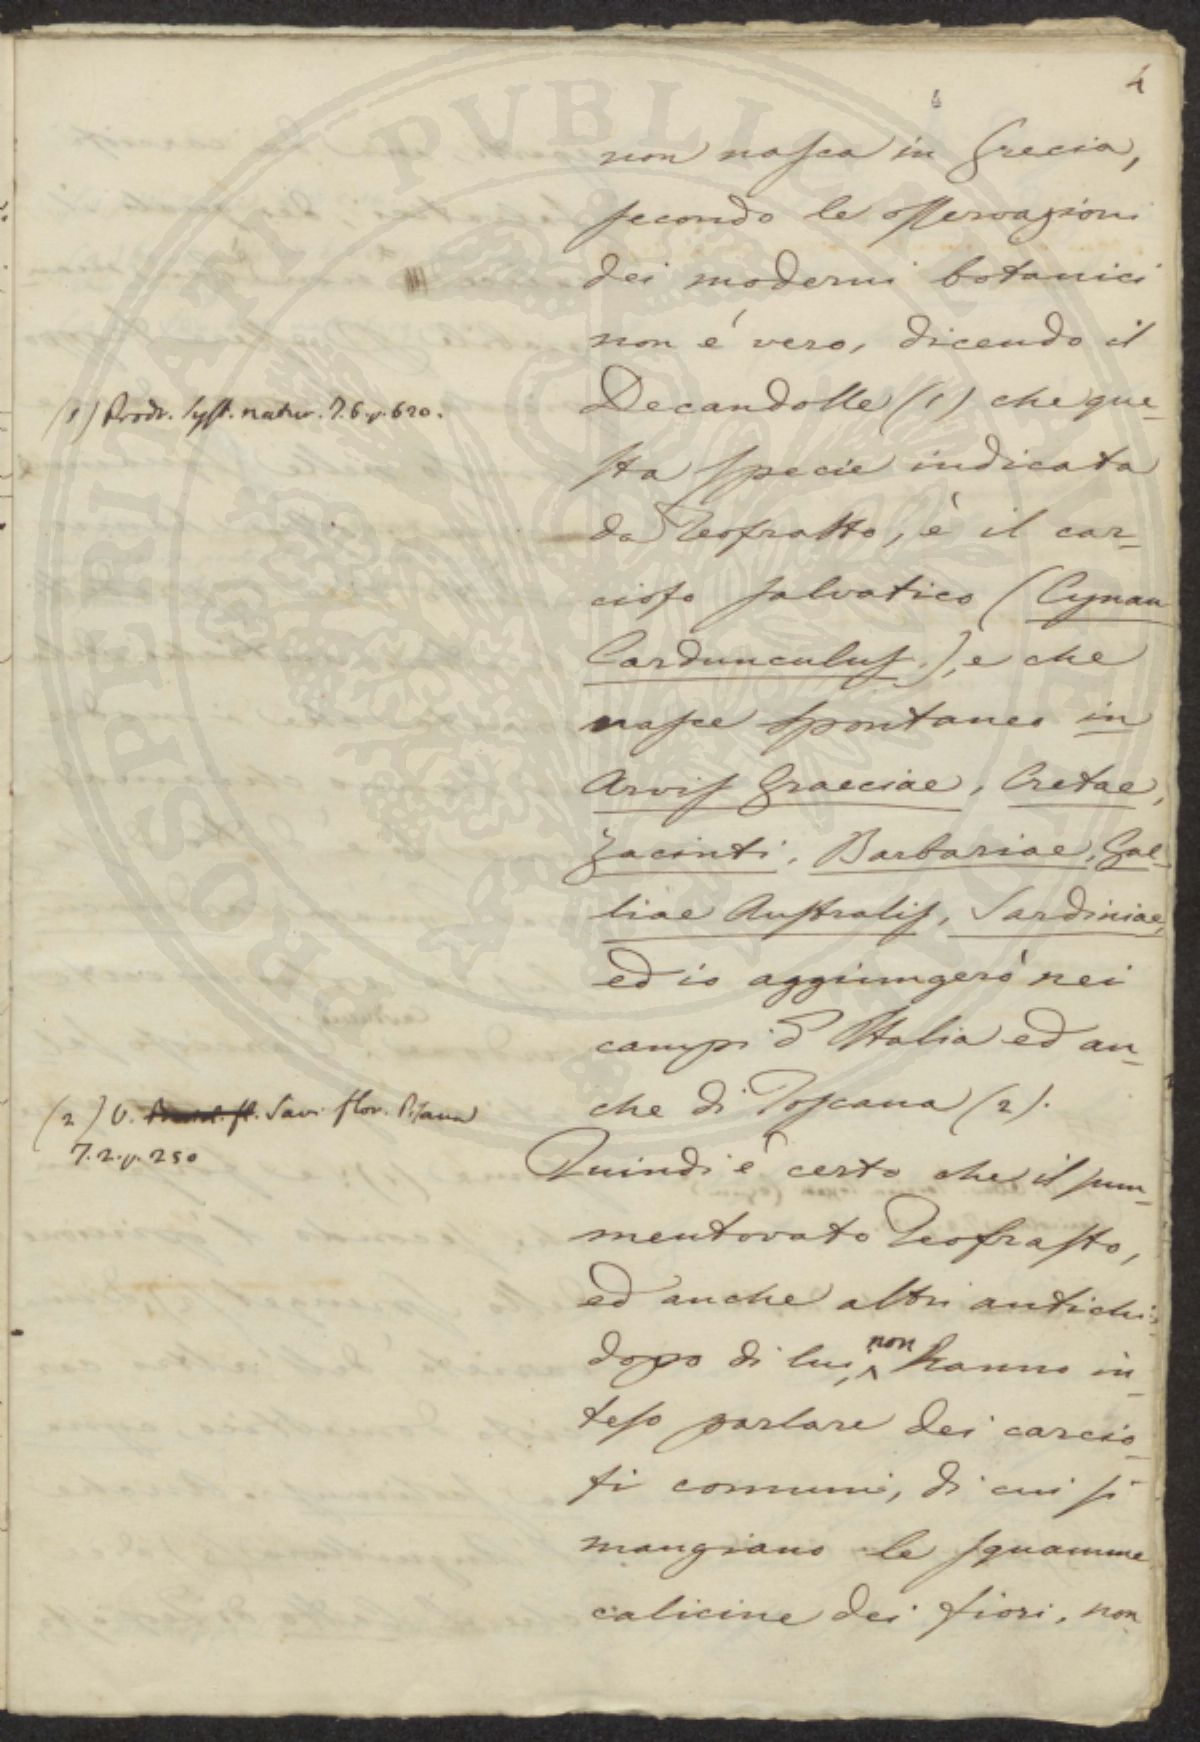 4
non nasca in Grecia,
secondo le osservazioni
dei moderni botanici
non é vero, dicendo il
Decandolle (1) che que-
sta specie indicata
da Teofrasto, è il car-
ciofo salvatico (Cynan
Cardunculus.), e che
nasce spontaneo in
Arvis Graeciae, Cretae,
Zacinti, Barbariae, Gal-
liae Australis, Sardiniae,
ed io aggiungerò nei
campi d'Italia ed an-
che di Toscana (2).
Quindi è certo che il sum-
mentovato Teofrasto,
ed anche altri antichi
dopo di lui, non hanno in-
teso parlare dei carcio-
fi comuni, di cui si
mangiano le squamme
calicine dei fiori, non
(1) Prodr. Syst. natur. T. 6. p. 620.
(2) V. Savi flor. Pisana
T. 2. p. 250
PROSPERITATI PUBLICAE